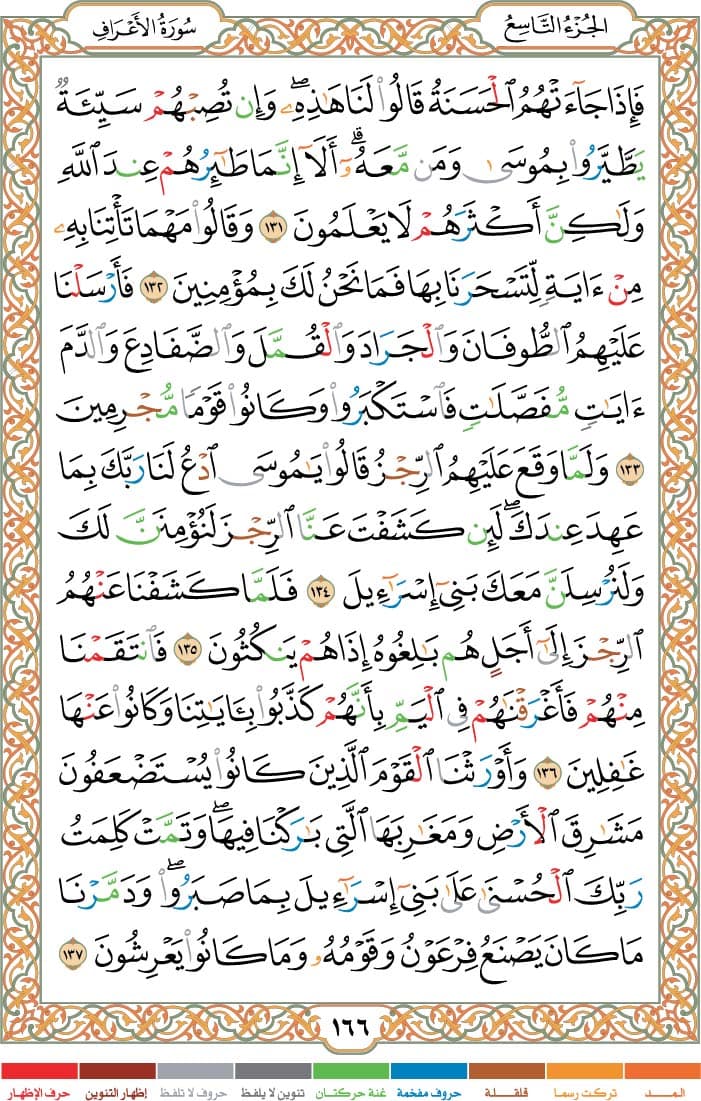 الجُزْءُ التَّاسِعُ
سُورَةُ الأَعْرَافِ
فَإِذَا جَآءَتْهُمُ ٱلْحَسَنَةُ قَالُوا۟ لَنَا هَٰذِهِۦ ۖ وَإِن تُصِبْهُمْ سَيِّئَةٌ
يَطَّيَّرُوا۟ بِمُوسَىٰ وَمَن مَّعَهُۥٓ ۗ أَلَآ إِنَّمَا طَٰٓئِرُهُمْ عِندَ ٱللَّهِ
وَلَٰكِنَّ أَكْثَرَهُمْ لَا يَعْلَمُونَ ١٣١ وَقَالُوا۟ مَهْمَا تَأْتِنَا بِهِۦ
مِنْ ءَايَةٍ لِّتَسْحَرَنَا بِهَا فَمَا نَحْنُ لَكَ بِمُؤْمِنِينَ ١٣٢ فَأَرْسَلْنَا
عَلَيْهِمُ ٱلطُّوفَانَ وَٱلْجَرَادَ وَٱلْقُمَّلَ وَٱلضَّفَادِعَ وَٱلدَّمَ
ءَايَٰتٍ مُّفَصَّلَٰتٍ فَٱسْتَكْبَرُوا۟ وَكَانُوا۟ قَوْمًا مُّجْرِمِينَ
١٣٣ وَلَمَّا وَقَعَ عَلَيْهِمُ ٱلرِّجْزُ قَالُوا۟ يَٰمُوسَى ٱدْعُ لَنَا رَبَّكَ بِمَا
عَهِدَ عِندَكَ ۖ لَئِن كَشَفْتَ عَنَّا ٱلرِّجْزَ لَنُؤْمِنَنَّ لَكَ
وَلَنُرْسِلَنَّ مَعَكَ بَنِىٓ إِسْرَٰٓءِيلَ ١٣٤ فَلَمَّا كَشَفْنَا عَنْهُمُ
ٱلرِّجْزَ إِلَىٰٓ أَجَلٍ هُم بَٰلِغُوهُ إِذَا هُمْ يَنكُثُونَ ١٣٥ فَٱنتَقَمْنَا
مِنْهُمْ فَأَغْرَقْنَٰهُمْ فِى ٱلْيَمِّ بِأَنَّهُمْ كَذَّبُوا۟ بِـَٔايَٰتِنَا وَكَانُوا۟ عَنْهَا
غَٰفِلِينَ ١٣٦ وَأَوْرَثْنَا ٱلْقَوْمَ ٱلَّذِينَ كَانُوا۟ يُسْتَضْعَفُونَ
مَشَٰرِقَ ٱلْأَرْضِ وَمَغَٰرِبَهَا ٱلَّتِى بَٰرَكْنَا فِيهَا ۖ وَتَمَّتْ كَلِمَتُ
رَبِّكَ ٱلْحُسْنَىٰ عَلَىٰ بَنِىٓ إِسْرَٰٓءِيلَ بِمَا صَبَرُوا۟ ۖ وَدَمَّرْنَا
مَا كَانَ يَصْنَعُ فِرْعَوْنُ وَقَوْمُهُۥ وَمَا كَانُوا۟ يَعْرِشُونَ ١٣٧
١٦٦
المـــد
تركت رسما
قلقلة
حروف مفخمة
غنة حركتان
تنوين لا يلفظ
حروف لا تلفظ
إظهار التنوين
حرف الإظهار